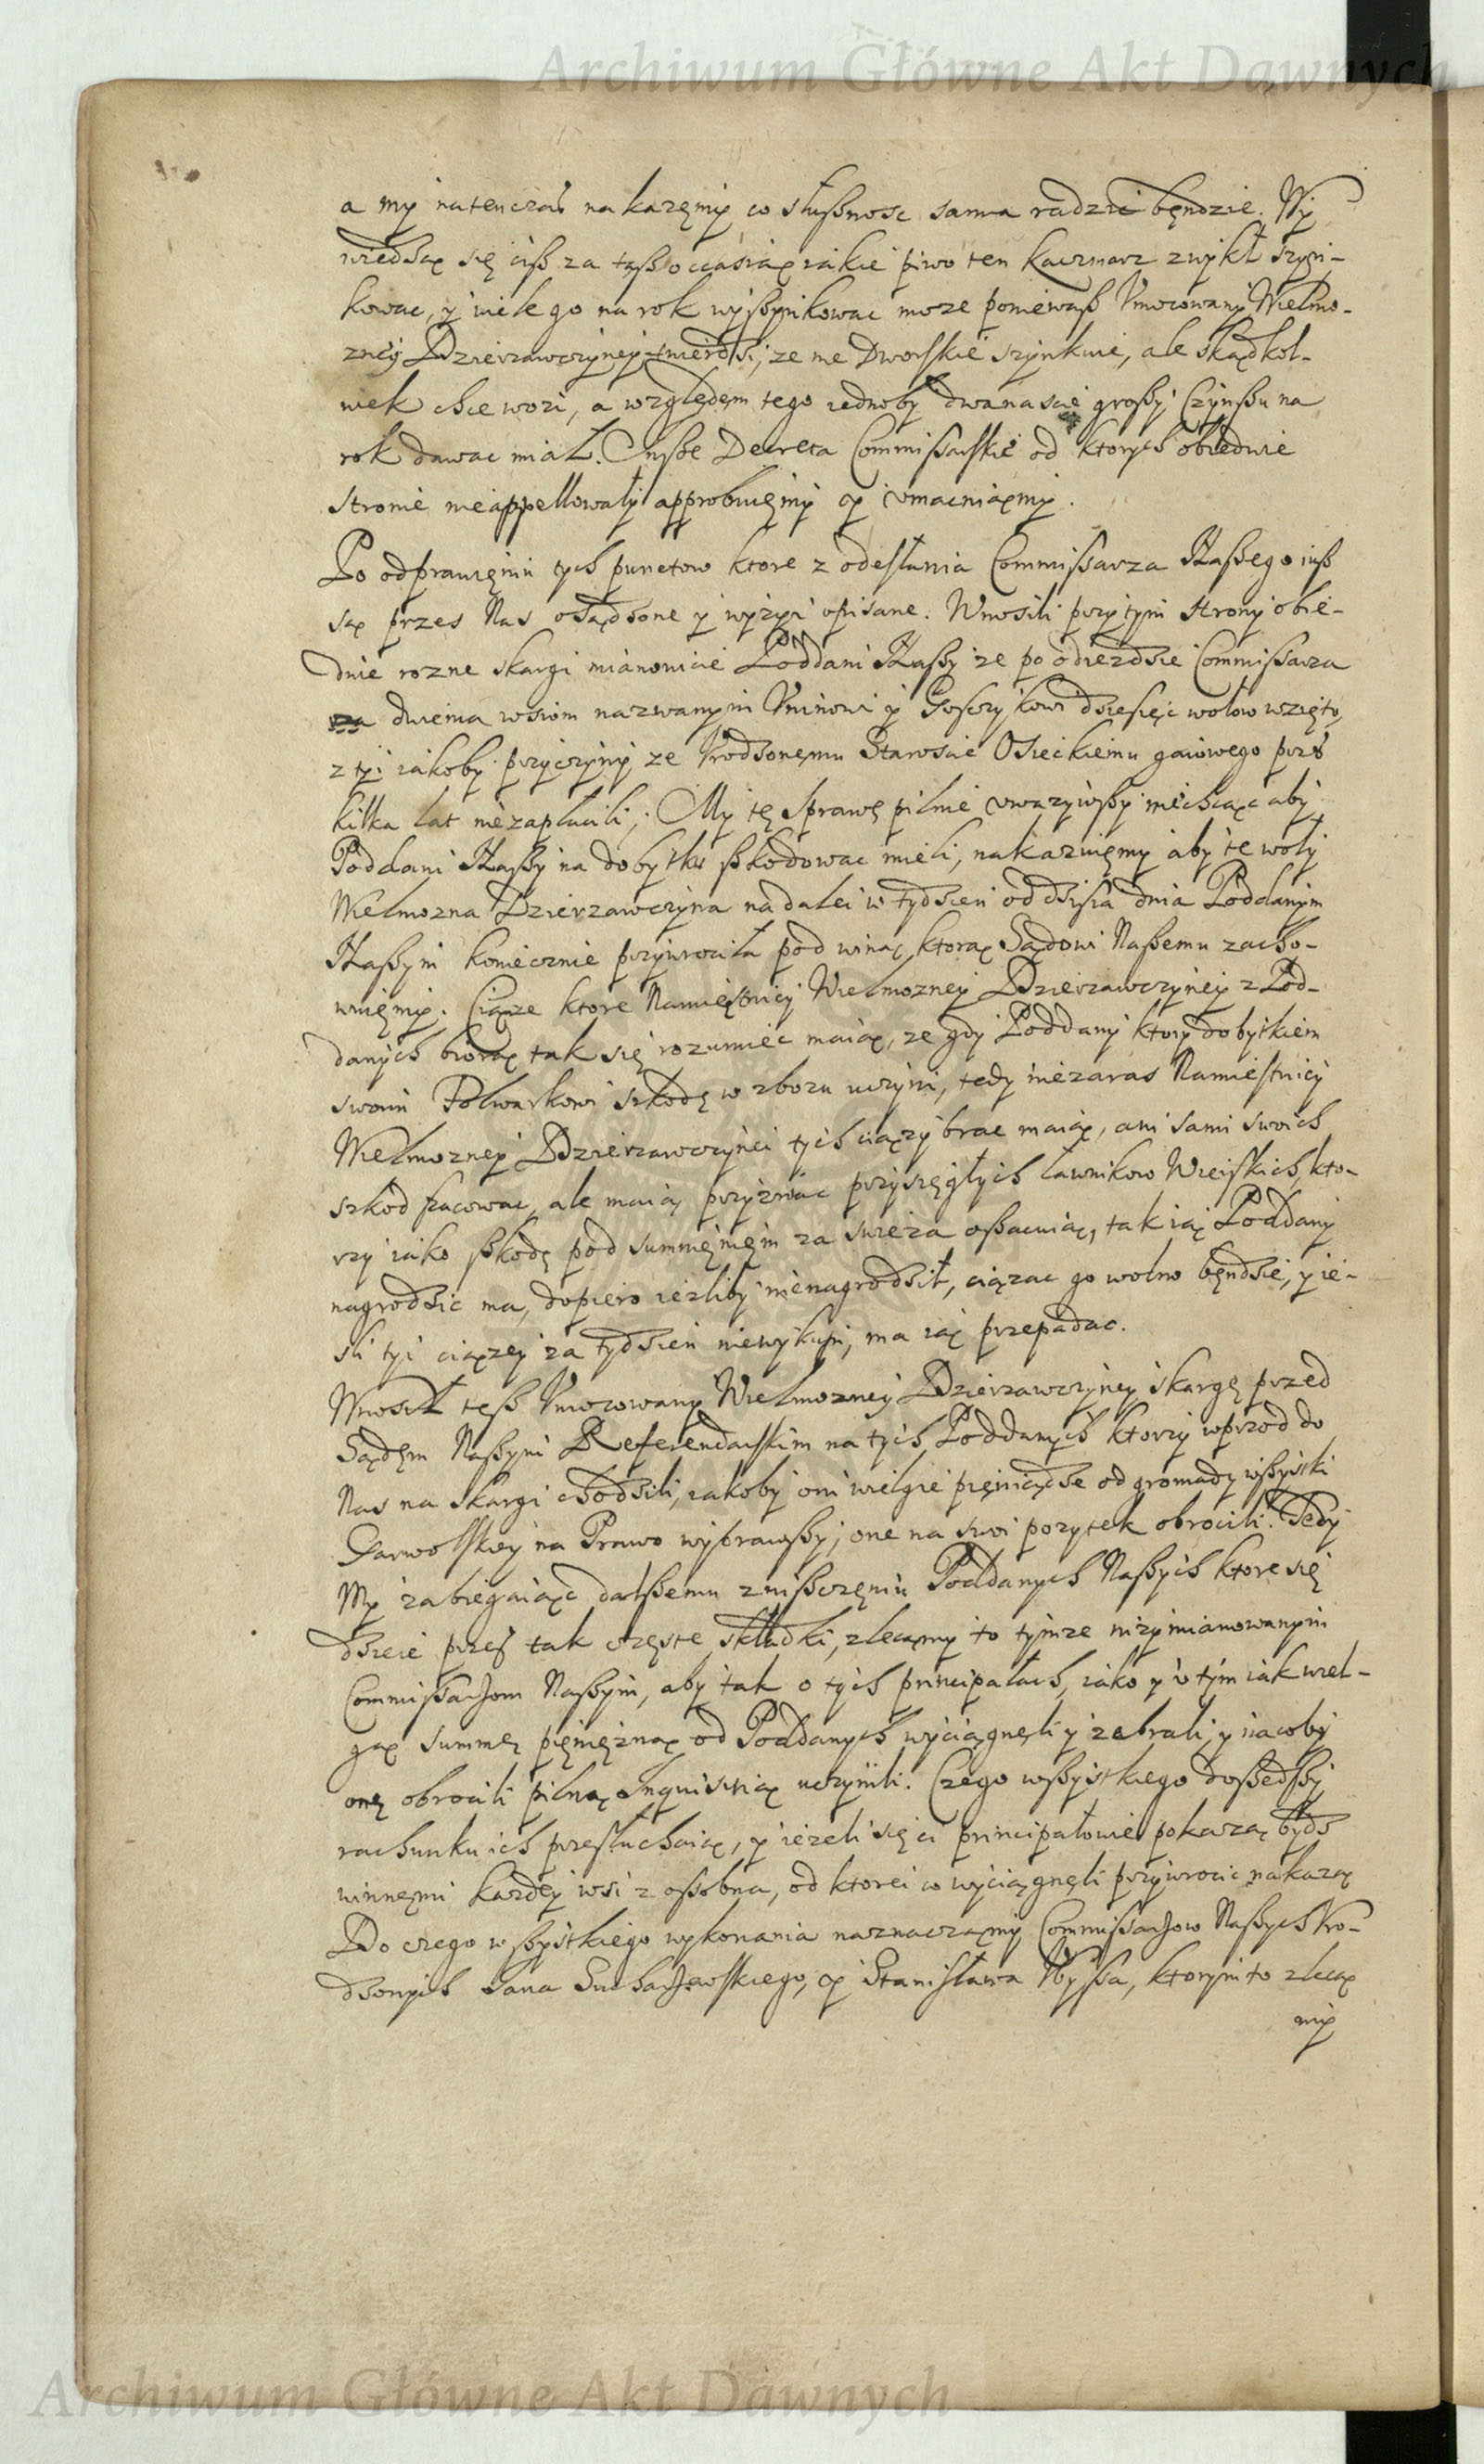 Archiwum Główne Akt Dawnych
a my natenczas nakazęmy co słußnosc sama radzic będzie. Wy
wiedsą się ciß za tąß occasią iakie piwo ten kaczmarz zwykł szyn-
kowac, y wiele go na rok wyßynkowac moze poniewaß Vmocowany Wielmo-
zney Dzierzawczyney twierdsi, ze nie Dworskie szynkuie, ale skądkol-
wiek chce wozi, a względem tego iednoby dwanascie großy Czynßu na
rok dawac miał. Insße Decreta Commißarskie od ktorych obiedwie
stronie nieappellowały approbuięmy y vmacniamy.
Po odprawięniu tych punctow ktore z odesłania Commißarza Naßego iuß
są przes Nas osądsone y wyzyi opisane. Wnosili przytym strony obie-
dwie rozne skargi mianowicie Poddani Naßy ze po odiezdsie Commißarza
dwiema wsiom nazwanym Vninowi y Goscykowi dsiesięc wołow wzięto,
z tyi iakoby przyczyny ze Vrodsonemu Staroscie Osieckiemu gaiowego przes
kilka lat niezapłacili; My tę Sprawę pilnie vwazywßy niechcąc aby
Poddani Naßy na dobytku ßkodowac mieli, nakazuięmy aby te woły
Wielmozna Dzierzawczyna nadalei w tydsien od dsisia dnia Poddanym
Naßym koniecznie przywrociła pod winą, ktorą Sądowi Naßemu zacho-
wuięmy. Ciąze ktore Namięstnicy Wielmozney Dzierzawczyney z Pod-
danych biorą tak się rozumiec maią, ze gdy Poddany ktory dobytkiem
swoim Folwarkowi szkodę w zbozu uczyni, tedy niezaras Namiestnicy
Wielmozney Dzierzawczynei tych ciązy brac maią, ani sami swoich
szkod szacowac, ale maią przyzwac przysięgłych ławnikow Wieiskich, kto-
rzy iako ßkodę pod summięnięm za swieza oßacuią, tak ią Poddany
nagrodsic ma, dopiero iezliby nienagrodsił, ciązac go wolno będsie, y ie-
sli tyi ciązey za tydsien niewykupi, ma ią przepadac.
Wnosił teß Vmocowany Wielmozney Dzierzawczyney skargę przed
Sądęm Naßym Referendarskim na tych Poddanych ktorzy wprzod do
Nas na skargi chodsili, iakoby oni wielgie pięniądse od gromady wßystki
Garwolskiey na Prawo wybrawßy, one na swoi pozytek obrocili. Tedy
My zabiegaiąc dalßemu znißczęniu Poddanych Naßych ktore się
dsieie przeß tak częste składki, zlecamy to tymze nizymianowanym
Commißarzom Naßym, aby tak o tych principałach, iako y o tym iak wiel-
gą summę pięnięzną od Poddanych wyciągnęli y zebrali, y nacoby
onę obrocili pilną Inquisitią uczynili. Czego wßystkiego doßedßy
rachunku ich przesłuchaią, y iezeli się ci principałowie pokazą bydz
winnęmi kazdey wsi z oßobna, od ktorei co wyciągnęli przywrocic nakazą
Do czego wßystkiego wykonania naznaczamy Commißarzow Naßych Vro-
dsonych Iana Sucharzewskiego, y Stanisława Wyßa, ktorym to zlecą
my
Archiwum Główne Akt Dawnych